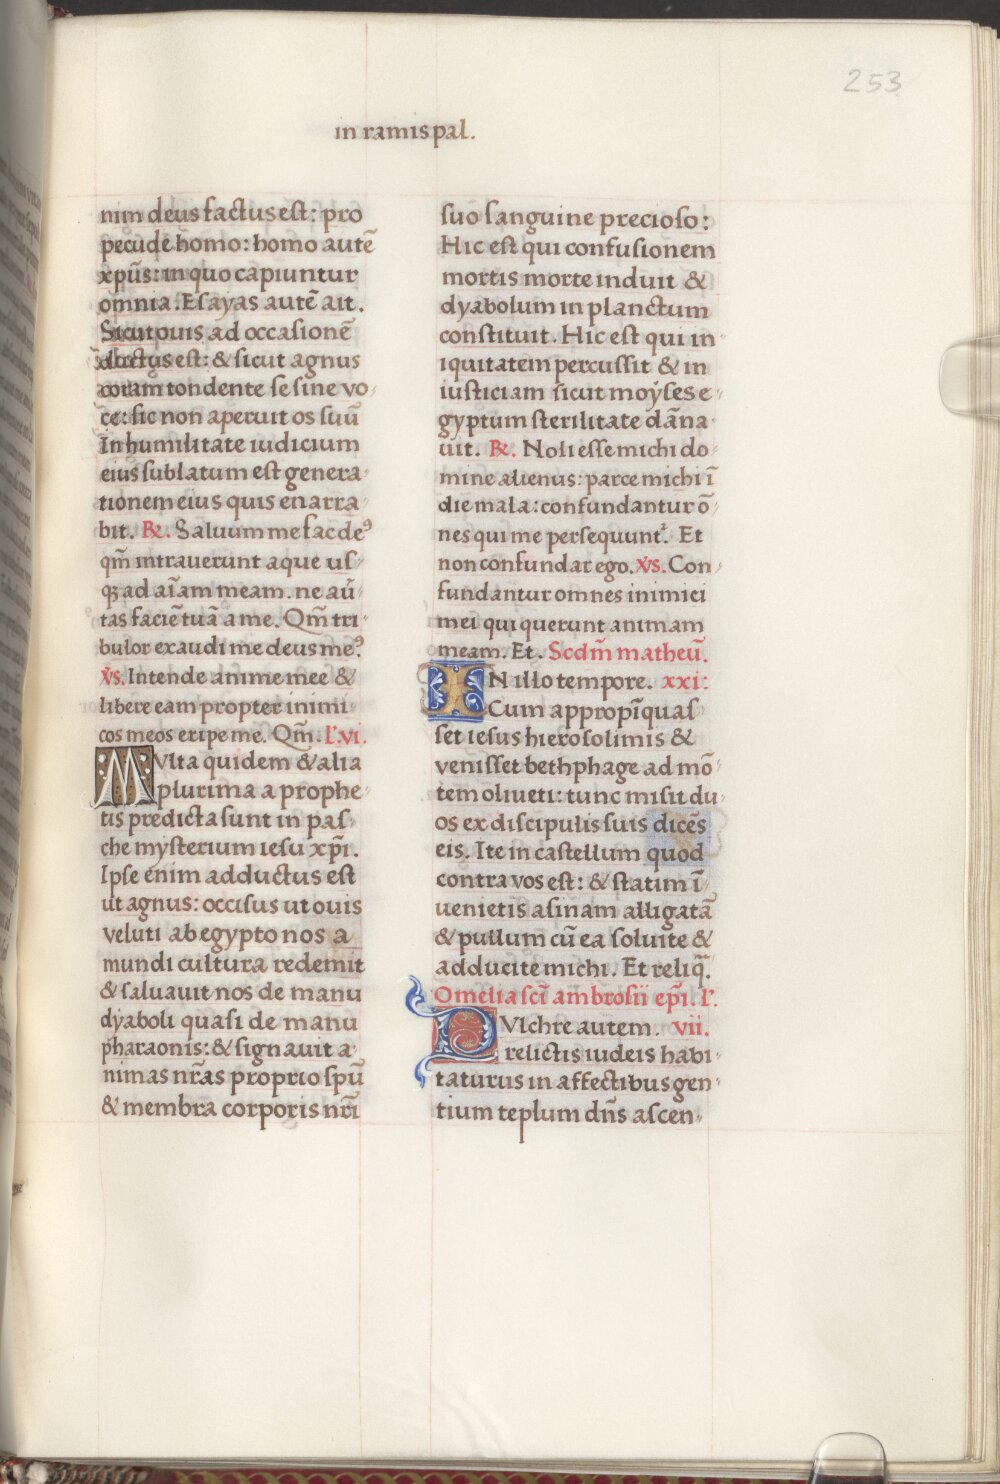 253
in ramis pal.
nim deus factus est: pro
pecude homo: homo autē
xp̄us: in quo capiuntur
omnia. Esayas autē ait.
Sicut ouis ad occasionē
ductus est: & sicut agnus
coram tondente se sine vo-
ce: sic non aperuit os suū
In humilitate iudicium
eius sublatum est genera-
tionem eius quis enarra-
bit. ℟. Saluum me fac deꝰ
qm̄ intrauerunt aque us-
qꝫ ad aīam meam. ne aū-
tas faciē tuā a me. Qm̄ tri-
bulor exaudi me deus meꝰ
v̄s. Intende anime mee &
libere eam propter inimi-
cos meos eripe me. Qm̄. l'. vi.
MVlta quidem & alia
plurima a prophe-
tis predicta sunt in pas-
che mysterium iesu xp̄i.
Ipse enim adductus est
ut agnus: occisus ut ouis
veluti ab egypto nos a
mundi cultura redemit
& saluauit nos de manu
dyaboli quasi de manu
pharaonis: & signauit a-
nimas nr̄as proprio spū
& membra corporis nr̄i
suo sanguine precioso:
Hic est qui confusionem
mortis morte induit &
dyabolum in planctum
constituit. Hic est qui in-
iquitatem percussit & in
iusticiam sicut moẏses e-
gyptum sterilitate dāna-
uit. ℟. Noli esse michi do-
mine alienus: parce michi ī
die mala: confundantur ō-
nes qui me persequunt᷑. Et
non confundar ego. v̄s. Con-
fundantur omnes inimici
mei qui querunt animam
meam. Et. Scdm̄ matheū.
IN illo tempore. xxi:
Cum appropīquas-
set iesus hierosolimis &
venisset bethphage ad mō-
tem oliueti: tunc misit du-
os ex discipulis suis dicēs
eis. Ite in castellum quod
contra vos est: & statim ī-
uenietis asinam alligatā
& pullum cū ea soluite &
adducite michi. Et reliq̄.
Omelia scī ambrosii ep̄i. l'.
PVlchre autem. vii.
relictis iudeis habi-
taturus in affectibus gen-
tium teplum dn̄s ascen-